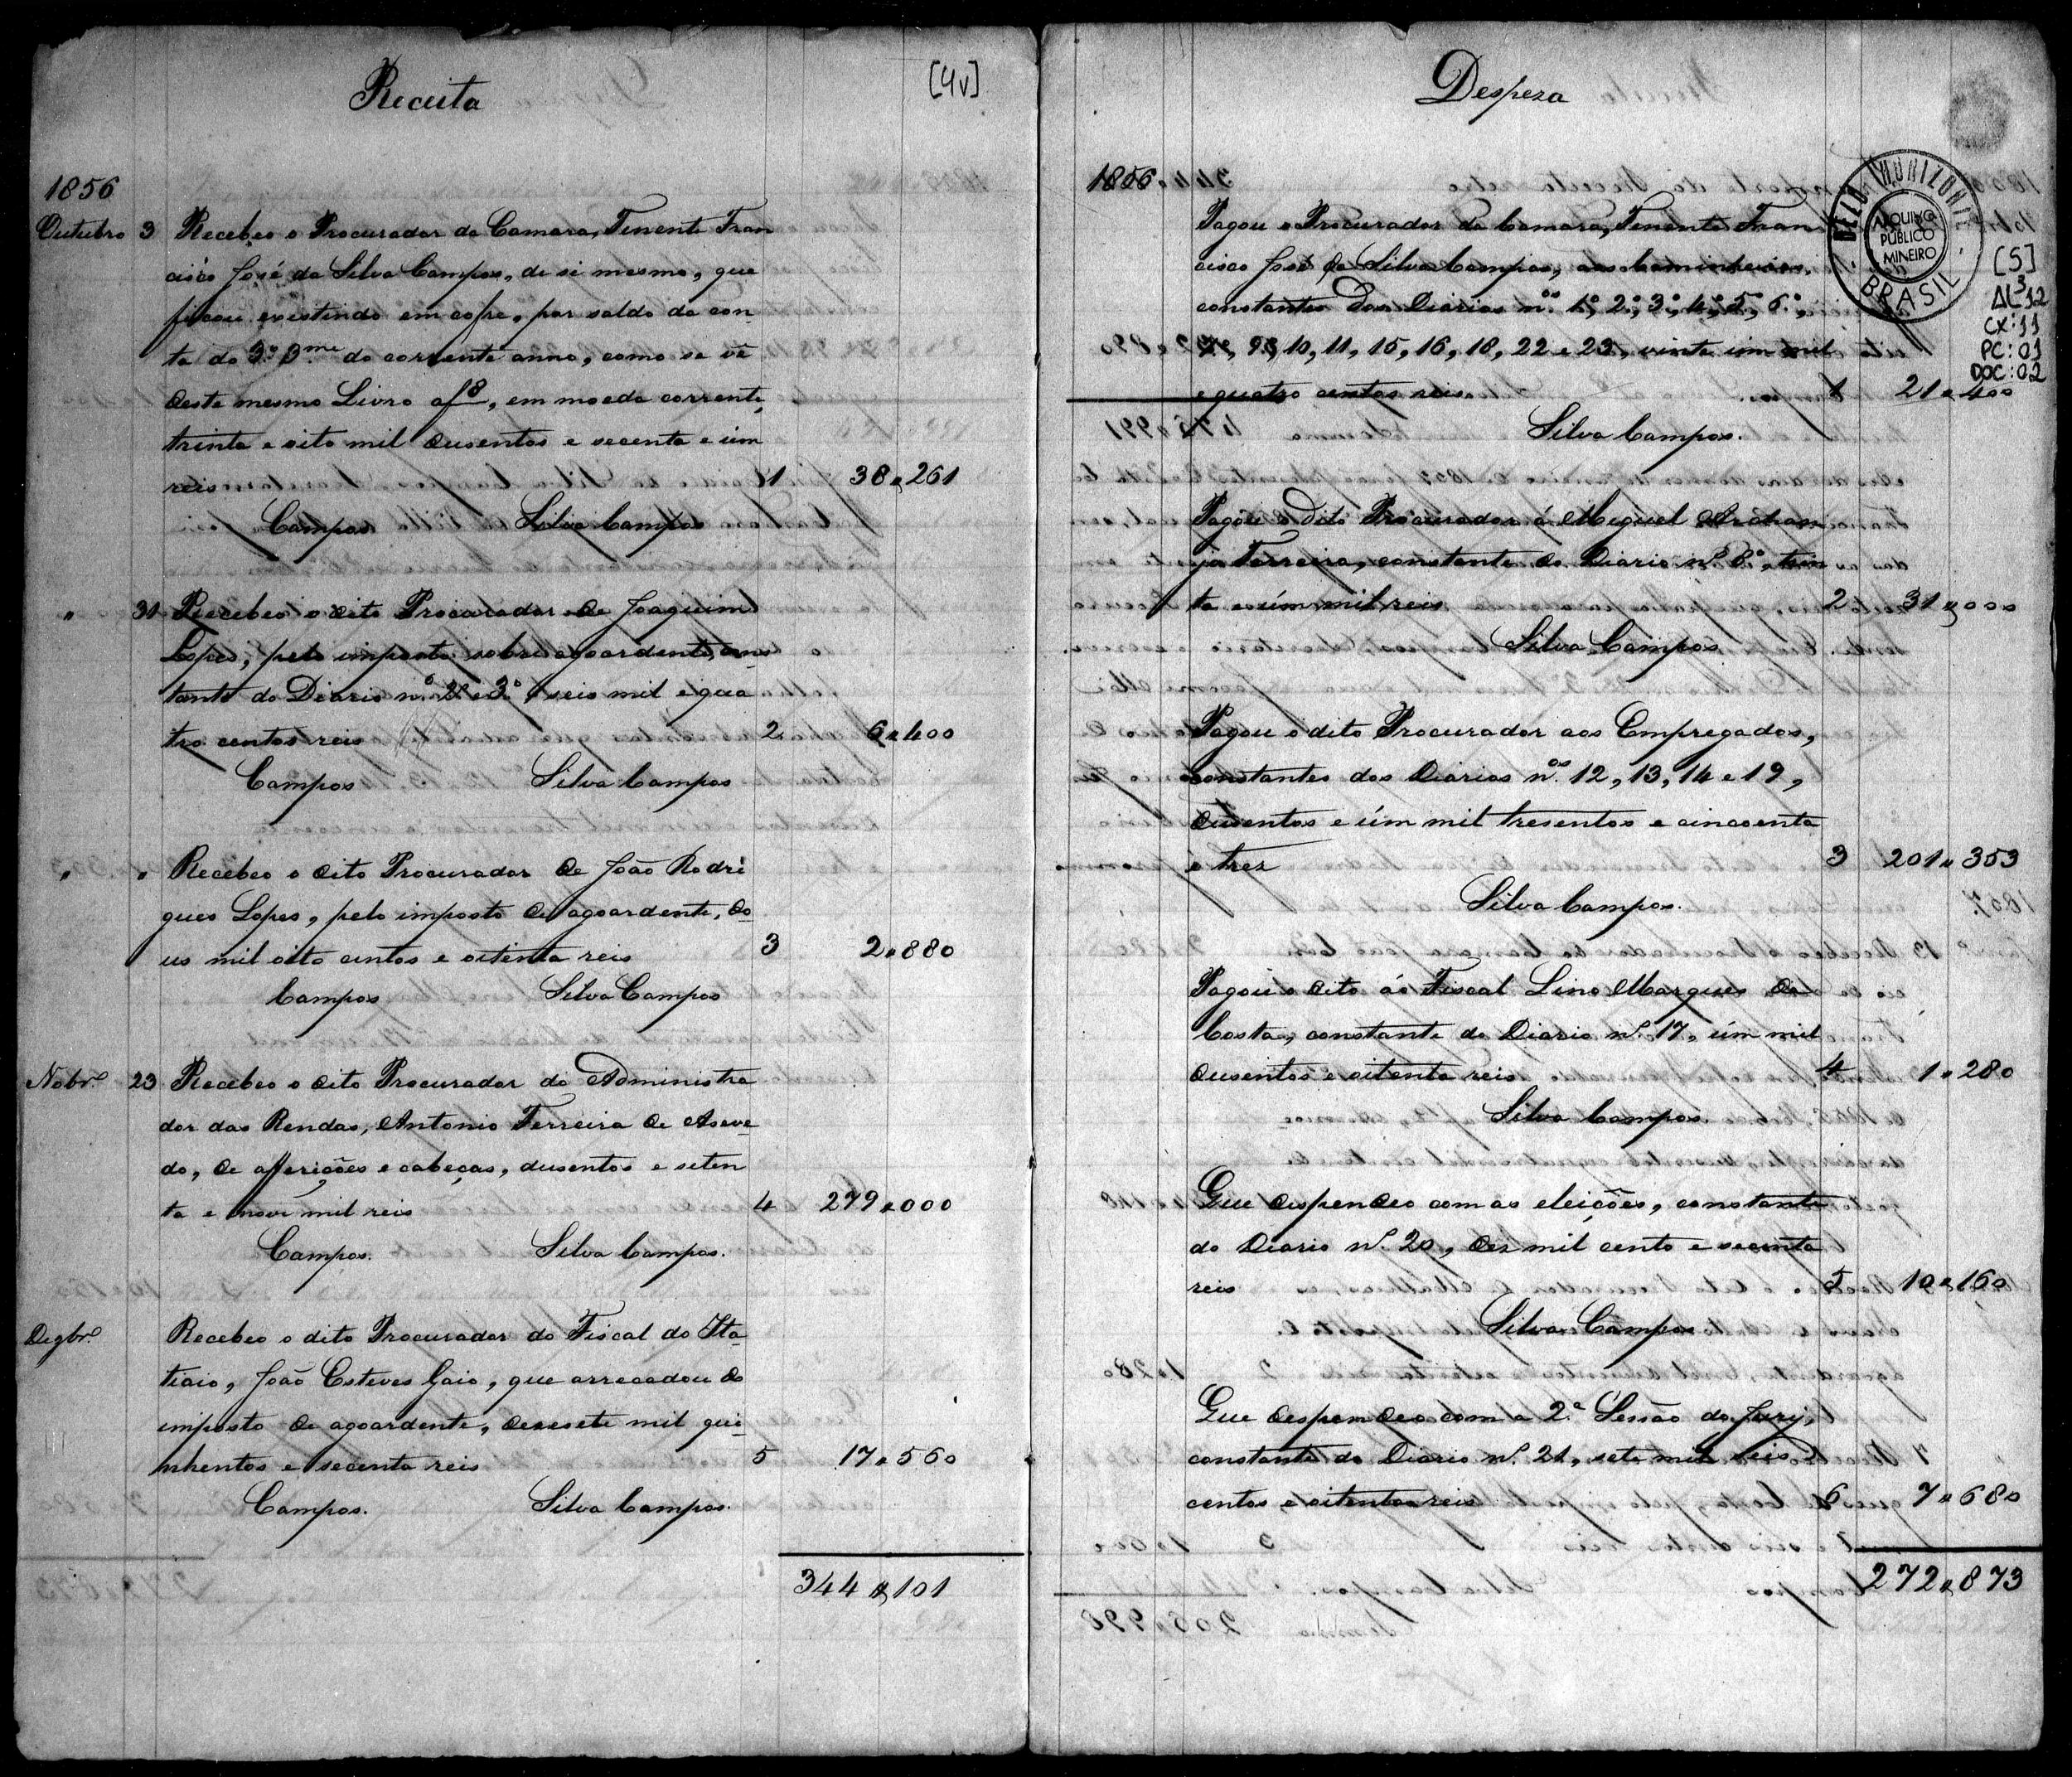 Receita
[4v]
1856
Outubro 3 Recebeo o Procurador da Camara, Tenente Fran
cisco José da Silva Campos, de si mesmo, que
ficou existindo em cofre, por saldo da con-
ta do 3.º 3.me do corrente anno, como se vê
deste mesmo Livro a f 8, em moeda corrente,
trinta e oito mil dusentos e secenta e úm
reis 1 38 " 261
Campos Silva Campos
" 31 Recebeo o dito Procurador de Joaquim
Lopes, pelo imposto sobre agoardente, cons
tante do Diario n.º 2º e 3º, seis mil e qua
tro centos reis 2 6 " 400
Campos Silva Campos
" " Recebeo o dito Procurador de João Rodri
gues Lopes, pelo imposto de agoardente, do-
us mil oito centos e oitenta reis 3 2 " 880
Campos Silva Campos
Nobr.º 23 Recebeo o dito Procurador do Administra
dor das Rendas, Antonio Ferreira de Aseve-
do, de afferições e cabeças, dusentos e seten
ta e nove mil reis 4 279 " 000
Campos. Silva Campos.
Dezbr.º Recebeo o dito Procurador do Fiscal do Ita-
tiaio, João Esteves Gaio, que arrecadou do
imposto de agoardente, desesete mil qui-
nhentos e secenta reis 5 17 " 560
Campos. Silva Campos.
344 " 101
Despeza
1856
Pagou o Procurador da Camara, Tenente Fran
cisco José da Silva Campos, aos Caminheiros,
constantes dos Diarios n.os 1º, 2º, 3º, 4º, 5º, 6º,
9, 10, 11, 15, 16, 18, 22 e 23, vinte úm mil
e quatro centos reis. 1 21 " 400
Silva Campos.
Pagou o dito Procurador á Miguel Archan
jo Ferreira, constante do Diario n.º 8º, trin
ta e úm mil reis 2 31 " 000
Silva Campos
Pagou o dito Procurador aos Empregados,
constantes dos Diarios n.os 12, 13, 14 e 19,
dusentos e úm mil tresentos e cincoenta
e tres 3 201 " 353
Silva Campos.
Pagou o dito áo Fiscal Lino Marques da
Costa, constante do Diario n.º 17, úm mil
dusentos e oitenta reis 4 1 " 280
Silva Campos.
Que despendeo com as eleições, constante
do Diario n.º 20, des mil cento e secenta
reis 5 10 " 160
Silva Campos
Que despendeo com a 2.ª Sessão do Jury,
constante do Diario n.º 21, sete mil seis
centos e oitenta reis 6 7 " 680
272 " 873
BELO HORIZONTE
ARQUIVO
PÚBLICO
MINEIRO
BRASIL
[5]
CX: 11
PC: 01
DOC: 02